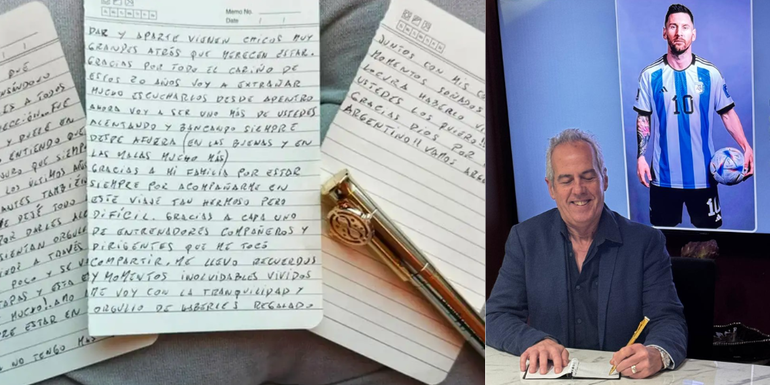 QUE
ES A TODOS
Y DUELE EN
O ENTIENDO QUE
URO QUE SIEMP
LOS ÚLTIMOS AÑOS
ANTES TAMBIÉN
E DEJÉ TODO
POR DARLES
SIENTAN ORGUL
S A TRAVÉS
POCO Y SE V
TAPAS Y ESTA
MUCHO! AMO
RE ESTAR EN
NO TENGO MÁS
Memo No.
Date / /
DAR Y APARTE VIENEN CHICOS MUY
GRANDES ATRÁS QUE MERECEN ESTAR.
GRACIAS POR TODO EL CARIÑO DE
ESTOS 20 AÑOS VOY A EXTRAÑAR
MUCHO ESCUCHARLOS DESDE ADENTRO
AHORA VOY A SER UNO MÁS DE USTEDES
ALENTANDO Y BANCANDO SIEMPRE
DESDE AFUERA (EN LAS BUENAS Y EN
LAS MALAS MUCHO MÁS)
GRACIAS A MI FAMILIA POR ESTAR
SIEMPRE POR ACOMPAÑARME EN
ESTE VIAJE TAN HERMOSO PERO
DIFÍCIL. GRACIAS A CADA UNO
DE ENTRENADORES COMPAÑEROS Y
DIRIGENTES QUE ME TOCÓ
COMPARTIR. ME LLEVO RECUERDOS
Y MOMENTOS INOLVIDABLES VIVIDOS
ME VOY CON LA TRANQUILIDAD Y
ORGULLO DE HABERLES REGALADO
JUNTOS CON MIS CO
MOMENTOS SOÑADOS
LOCURA HABERLO VI
USTEDES LOS QUIERO!!
GRACIAS DIOS POR
ARGENTINO!! VAMOS ARGE
10